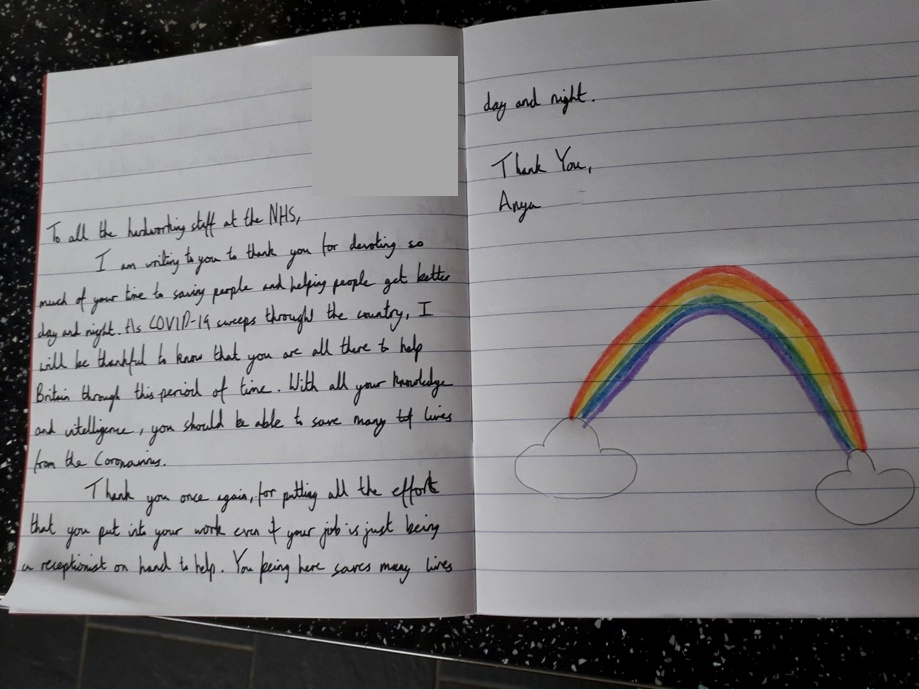 To all the hardworking staff at the NHS,
I am writing to you to thank you for devoting so
much of your time to saving people and helping people get better
day and night. As COVID-19 sweeps through the country, I
will be thankful to know that you are all there to help
Britain through this period of time. With all your knowledge
and intelligence, you should be able to save many lives
from the Coronavirus.
Thank you once again, for putting all the effort
that you put into your work even if your job is just being
a receptionist on hand to help. You being here saves many lives
day and night.
Thank You,
Anya